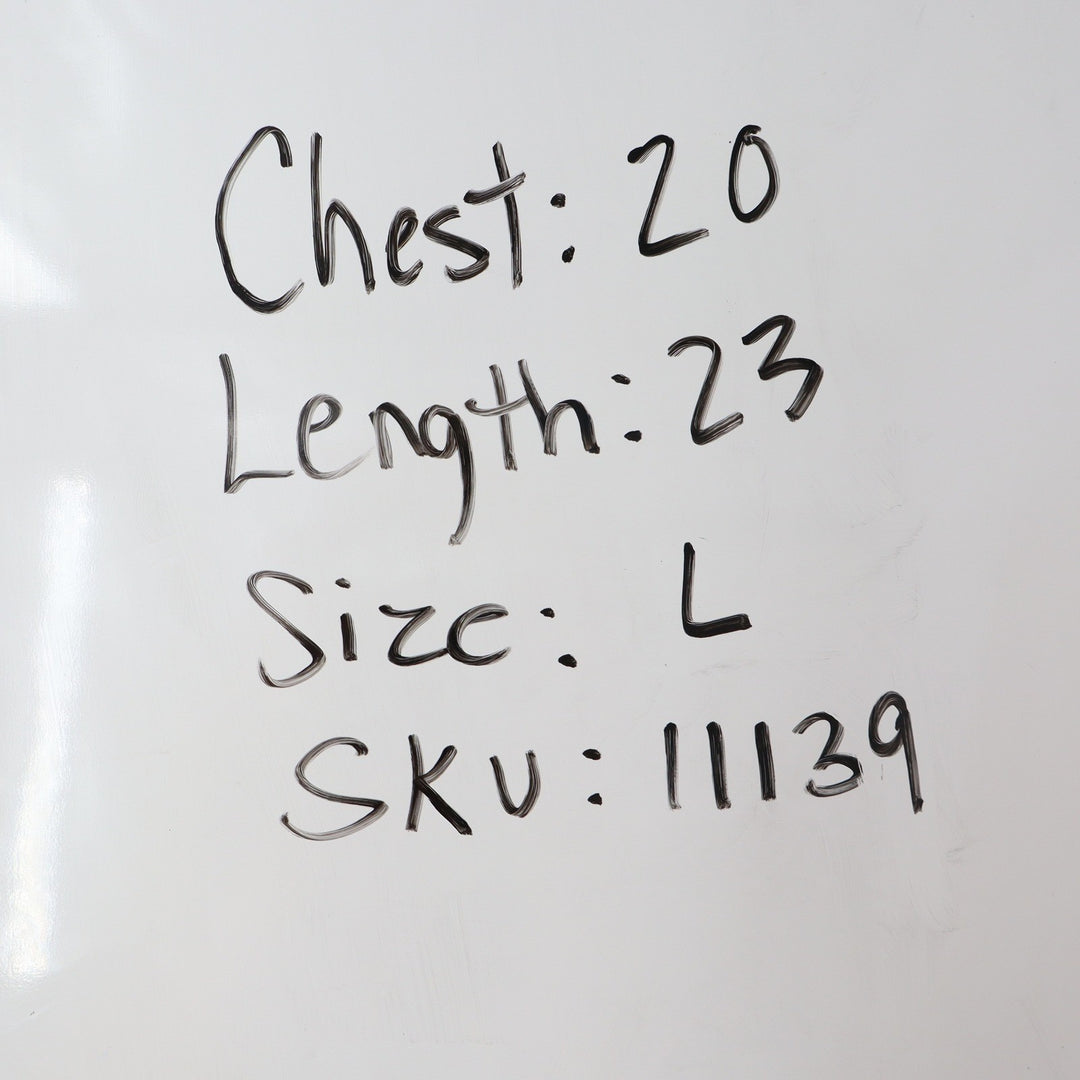 Chest: 20
Length: 23
Size: L
SKU: 11139